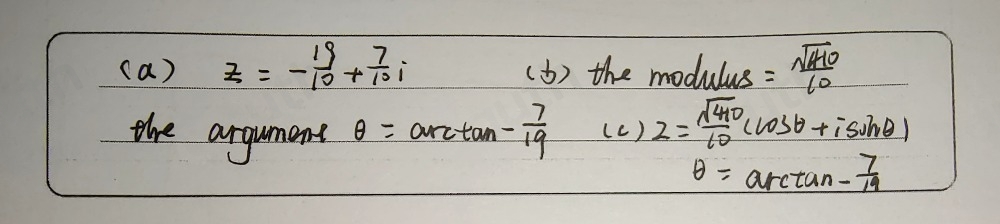 (a) z = -19/10 + 7/10 i (b) the modulus = √410/10
the argument θ = arctan - 7/19 (c) z = √410/10 (cosθ + i sinθ)
θ = arctan - 7/19